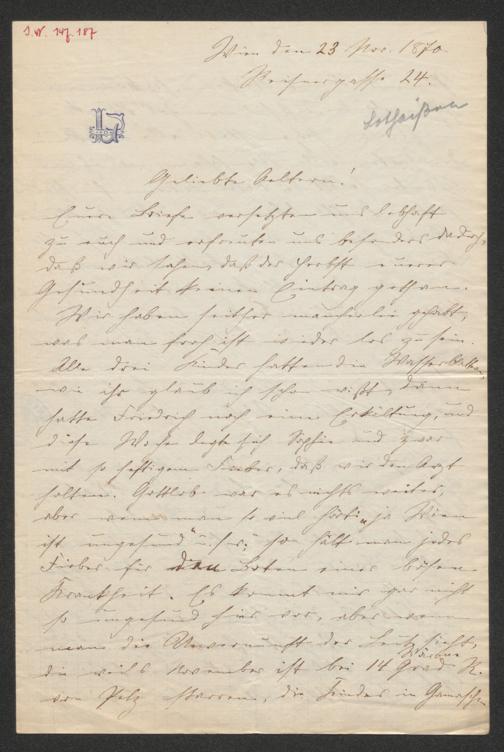 I.N. 147.187
Wien den 23 Nov. 1870.
Reisnergasse 24.
Lotheißen
Geliebte Aeltern!
Eure Briefe versetzten uns lebhaft
zu euch und erfreuten uns besonders dadurch,
daß wir sahen, daß der Herbst eurer
Gesundheit keinen Eintrag gethan.
Wir haben seither mancherlei gehabt,
was man froh ist wieder los zu sein.
Alle drei Kinder hatten die Wasserblattern
wie ihr glaub ich schon wißt, dann
hatte Friedrich noch eine Erkältung, und
diese Woche legte sich Sophie und zwar
mit so heftigem Fieber, daß wir den Arzt
holten. Gottlob war es nichts weiter,
aber wenn man so viel hört „ja Wien
ist ungesund" u.s.w. so hält man jedes
Fieber für den Boten einer bösen
Krankheit. Es kommt mir gar nicht
so ungesund hier vor, aber wenn
man die Unvernunft der Leute sieht,
die weils November ist bei 14 Grad Wärme R.
von Pelz starren, die Kinder in Gamaschen